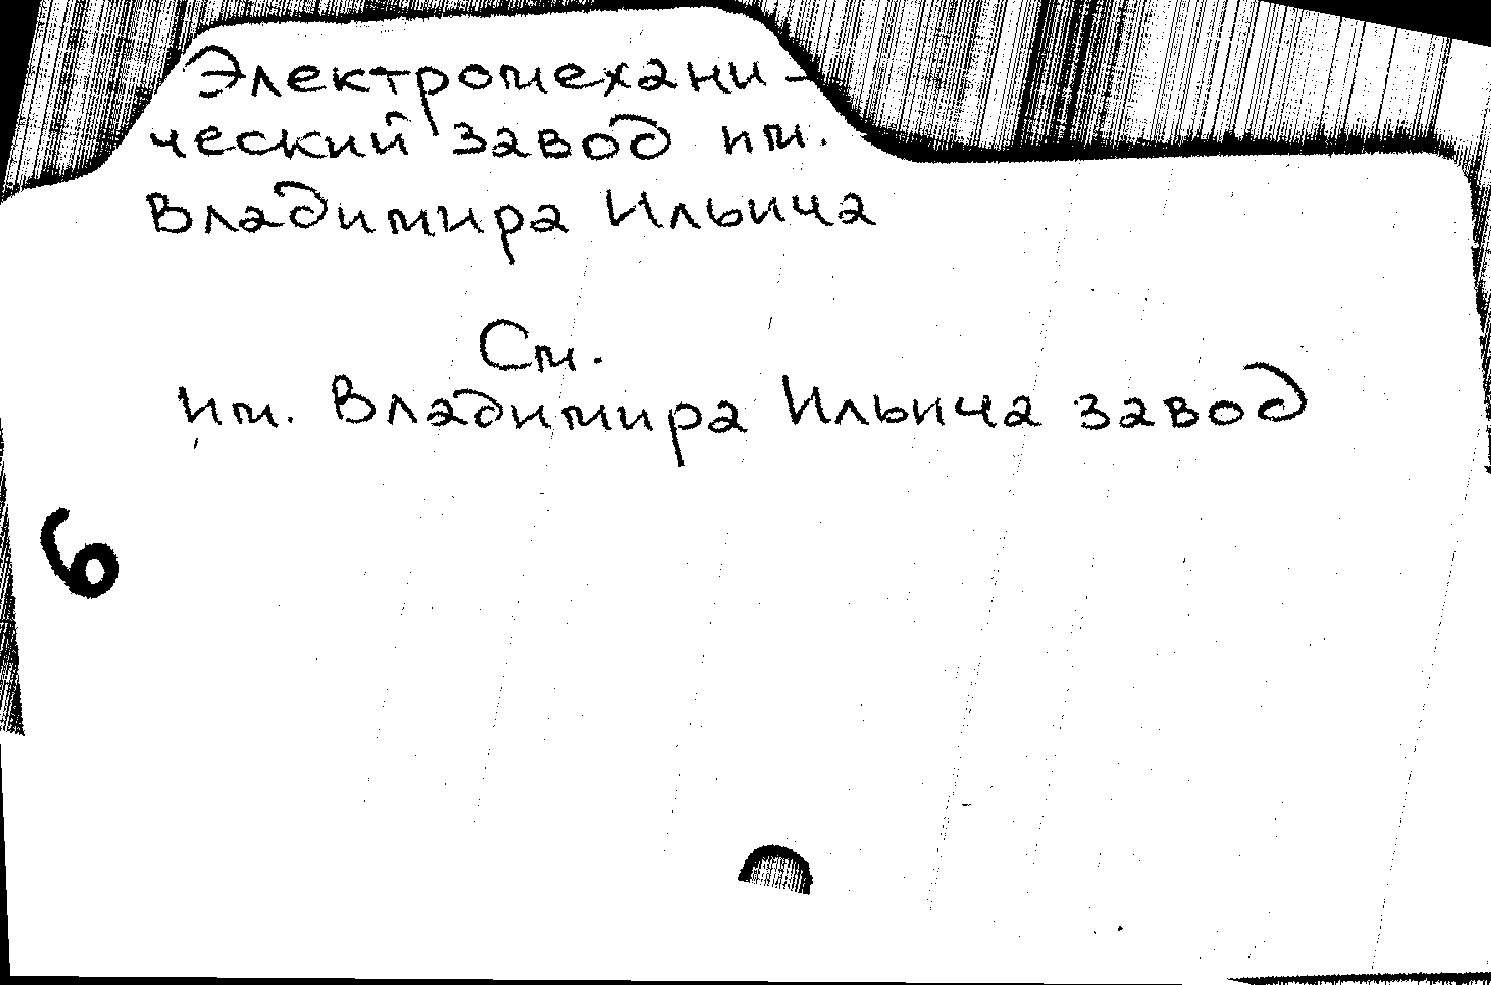 Электромехани-
ческий завод им.
Владимира Ильича
См.
им. Владимира Ильича завод
6